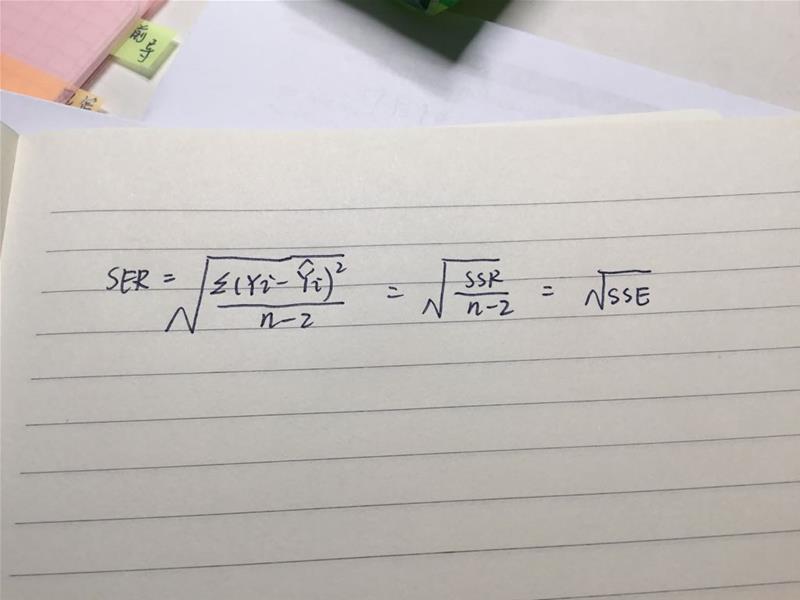 前导
SER = √(Σ(Yi-Ŷi)²/(n-2)) = √(SSR/(n-2)) = √SSE